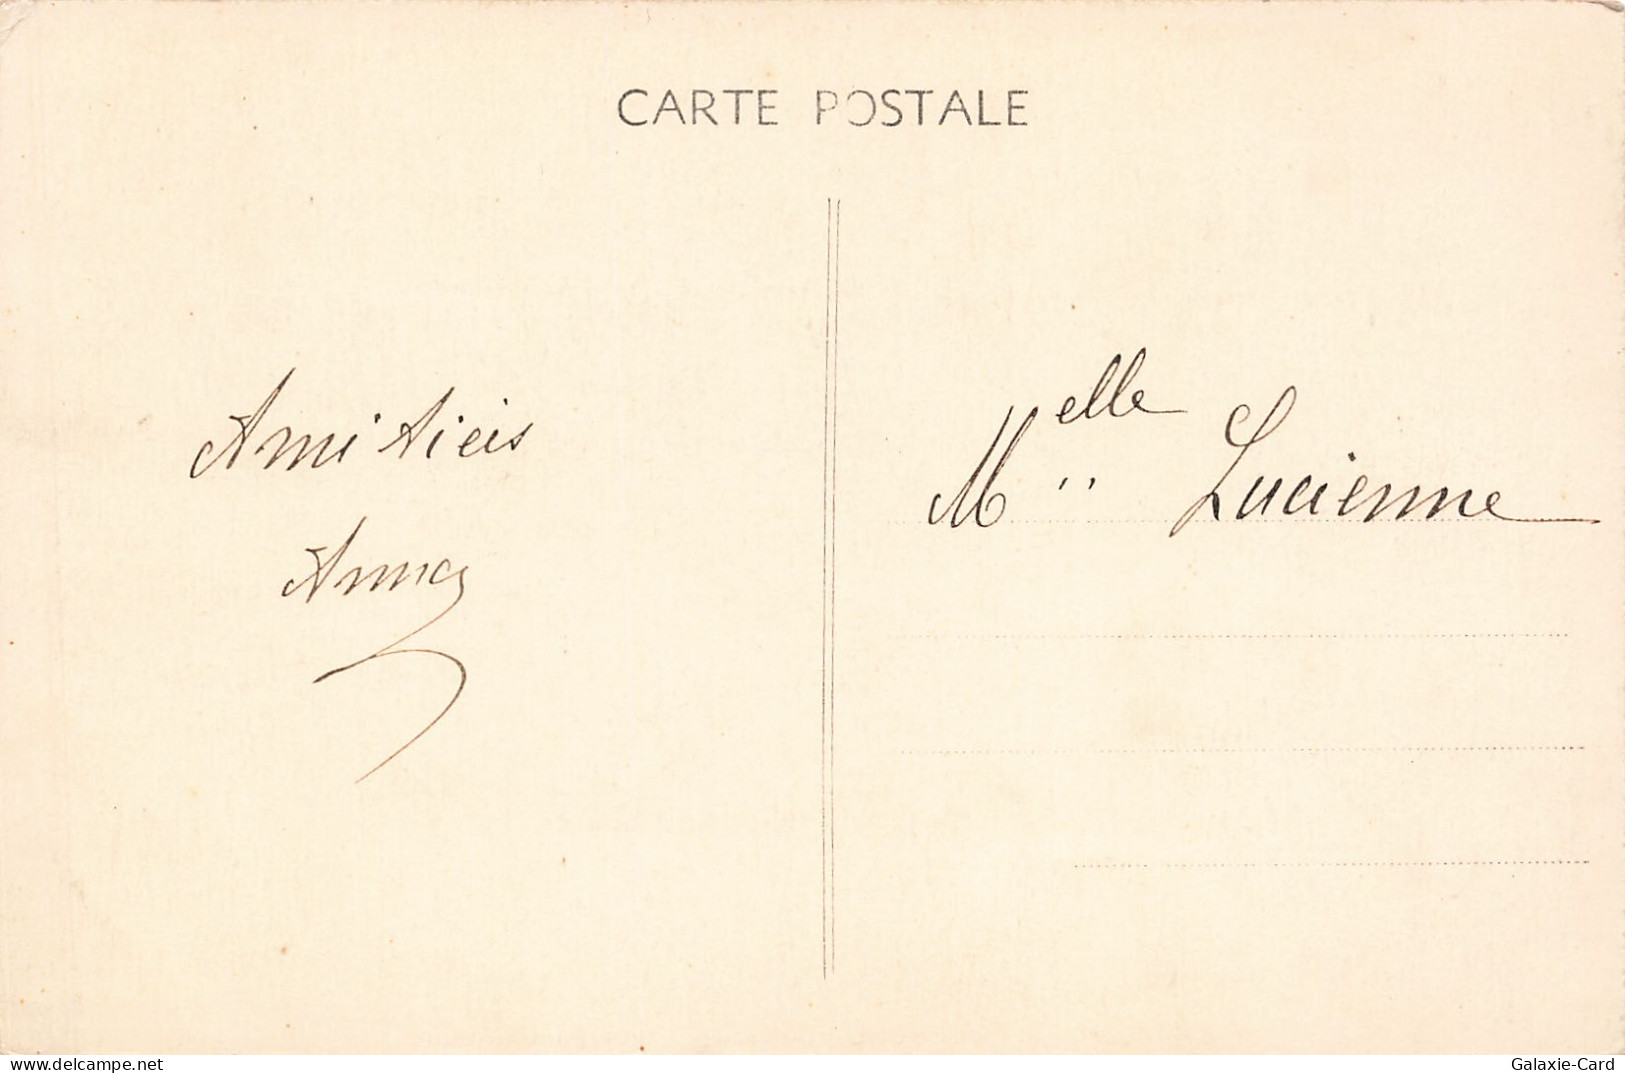 CARTE POSTALE
Amitieis
Anna
Melle Lucienne
www.delcampe.net
Galaxie-Card